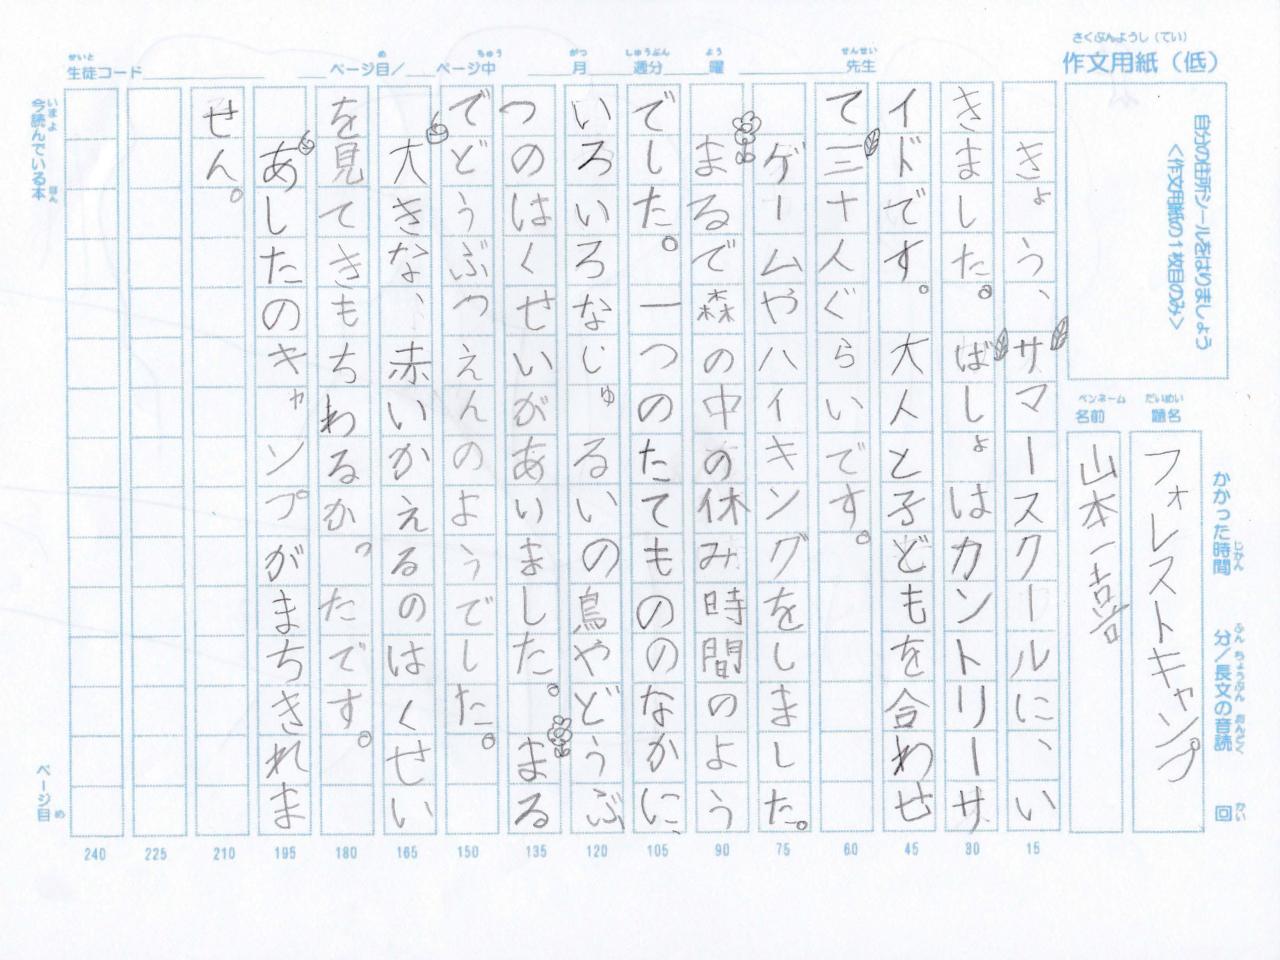 さくぶんようし（てい）
作文用紙（低）
せいと め ちゅう がつ しゅうぶん よう せんせい
生徒コード ページ目/ ページ中 月 週分 曜 先生
自分の住所シールをはりましょう
<作文用紙の1枚目のみ>
だいめい
題名
ペンネーム
名前
フォレストキャンプ
山本一喜
かかった時間 分/長文の音読 回
じかん ふん ちょうぶん おんどく かい
きょう、サマースクールに、い
きました。ばしょはカントリーサ
イドです。大人と子どもを合わせ
て三十人ぐらいです。
ゲームやハイキングをしました。
まるで森の中の休み時間のよう
でした。一つのたてもののなかに、
いろいろなじゅるいの鳥やどうぶ
つのはくせいがあいました。まる
でどうぶつえんのようでした。
大きな、赤いかえるのはくせい
を見てきもちわるかったです。
あしたのキャンプがまちきれま
せん。
いまよ ほん
今読んでいる本
ページ目
め
15
30
45
60
75
90
105
120
135
150
165
180
195
210
225
240